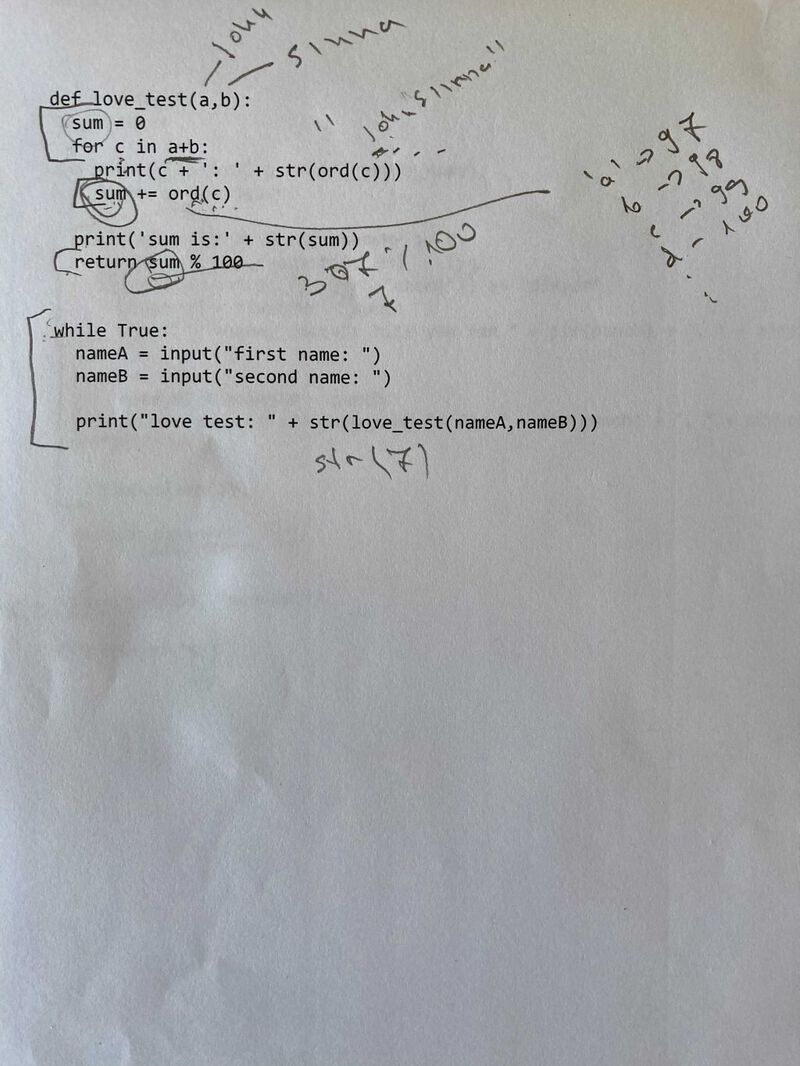 John
sinna
def love_test(a,b):
sum = 0
for c in a+b:
print(c + ': ' + str(ord(c)))
sum += ord(c)
print('sum is:' + str(sum))
return sum % 100
'a' -> 97
b -> 98
c -> 99
d - 100
307 % 100
7
while True:
nameA = input("first name: ")
nameB = input("second name: ")
print("love test: " + str(love_test(nameA,nameB)))
str(7)